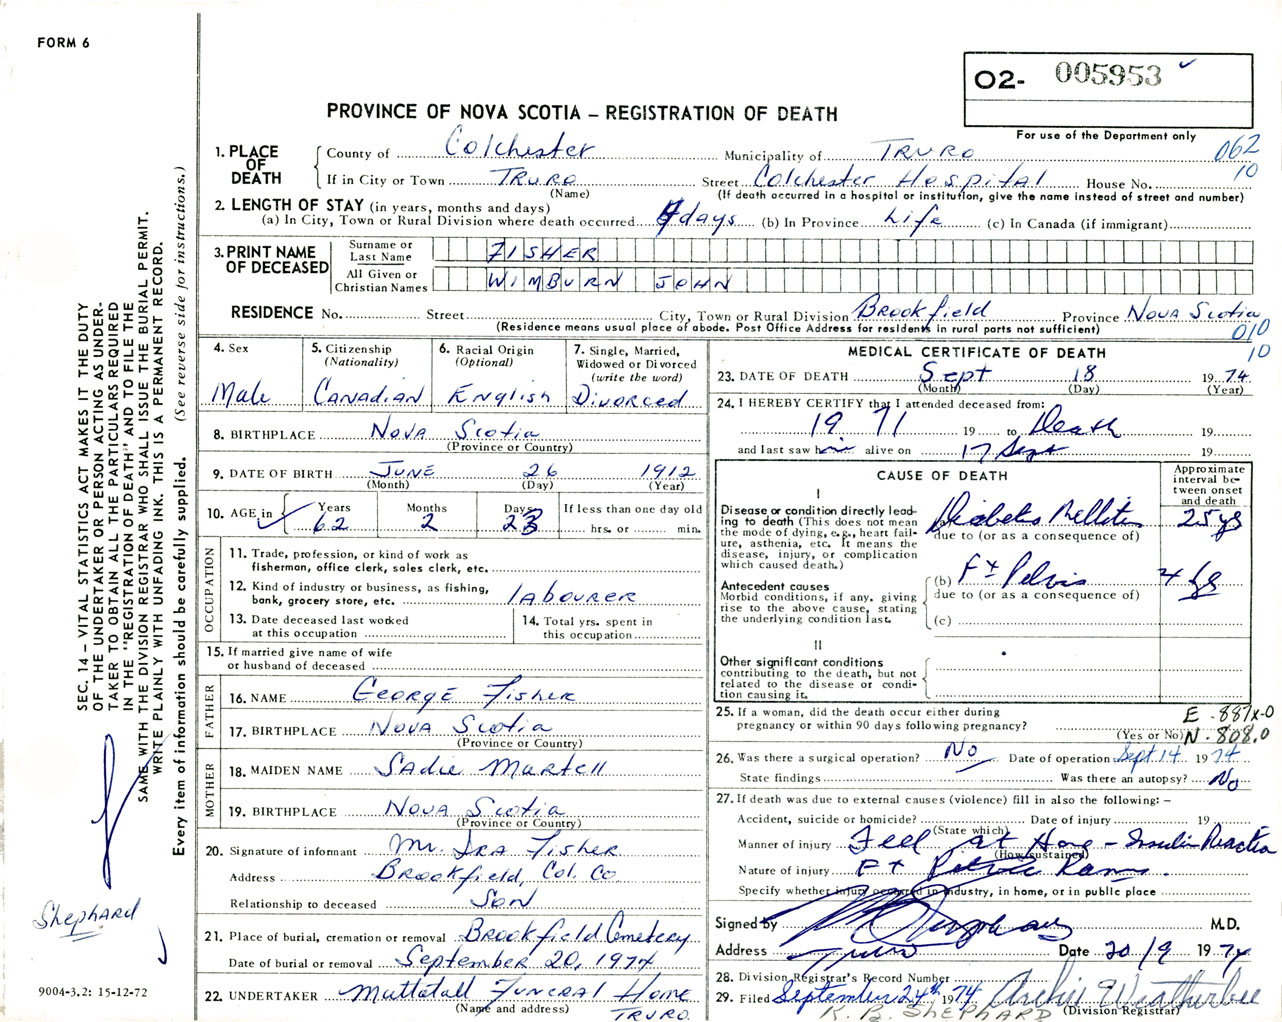 FORM 6
O2- 005953
For use of the Department only
PROVINCE OF NOVA SCOTIA – REGISTRATION OF DEATH
1. PLACE OF DEATH
County of Colchester Municipality of TRURO 062
If in City or Town TRURO Street Colchester Hospital House No. 10
(Name) (If death occurred in a hospital or institution, give the name instead of street and number)
2. LENGTH OF STAY (in years, months and days)
(a) In City, Town or Rural Division where death occurred days (b) In Province Life (c) In Canada (if immigrant)
3. PRINT NAME OF DECEASED
Surname or Last Name FISHER
All Given or Christian Names WIMBURN JOHN
RESIDENCE No. Street City, Town or Rural Division Brookfield Province Nova Scotia
(Residence means usual place of abode. Post Office Address for residents in rural parts not sufficient) 010
10
4. Sex Male
5. Citizenship (Nationality) Canadian
6. Racial Origin (Optional) English
7. Single, Married, Widowed or Divorced (write the word) Divorced
8. BIRTHPLACE Nova Scotia
(Province or Country)
9. DATE OF BIRTH JUNE 26 1912
(Month) (Day) (Year)
10. AGE in Years Months Days If less than one day old
62 2 23 hrs. or min.
OCCUPATION
11. Trade, profession, or kind of work as fisherman, office clerk, sales clerk, etc.
12. Kind of industry or business, as fishing, bank, grocery store, etc. labourer
13. Date deceased last worked at this occupation
14. Total yrs. spent in this occupation
15. If married give name of wife or husband of deceased
FATHER
16. NAME George Fisher
17. BIRTHPLACE Nova Scotia
(Province or Country)
MOTHER
18. MAIDEN NAME Sadie Martell
19. BIRTHPLACE Nova Scotia
(Province or Country)
20. Signature of informant Mr. Ira Fisher
Address Brookfield, Col. Co
Relationship to deceased Son
21. Place of burial, cremation or removal Brookfield Cemetery
Date of burial or removal September 20, 1974
22. UNDERTAKER Mattatall Funeral Home
(Name and address) TRURO
MEDICAL CERTIFICATE OF DEATH
23. DATE OF DEATH Sept 18 1974
(Month) (Day) (Year)
24. I HEREBY CERTIFY that I attended deceased from:
19 71 19 to Death 19
and last saw him alive on 17 Sept 19
CAUSE OF DEATH
Approximate interval between onset and death
I
Disease or condition directly leading to death (This does not mean the mode of dying, e.g., heart failure, asthenia, etc. It means the disease, injury, or complication which caused death.)
Diabetes Mellitus 25 yrs
due to (or as a consequence of)
Antecedent causes
Morbid conditions, if any, giving rise to the above cause, stating the underlying condition last.
(b) Fx Pelvis 4
due to (or as a consequence of)
(c)
II
Other significant conditions
contributing to the death, but not related to the disease or condition causing it.
25. If a woman, did the death occur either during pregnancy or within 90 days following pregnancy?
(Yes or No)
E - 887X-0
N - 808.0
26. Was there a surgical operation? No Date of operation Sept 14 1974
State findings Was there an autopsy? No
27. If death was due to external causes (violence) fill in also the following: –
Accident, suicide or homicide? Date of injury 19
(State which)
Manner of injury Fell at Home - Insulin Reaction
(How sustained)
Nature of injury Fx Pelvic Rami.
Specify whether injury occurred in industry, in home, or in public place
Signed by M.D.
Address Truro Date 20/9 1974
28. Division Registrar's Record Number
29. Filed September 24th 1974 Archie Weatherbee
R. B. SHEPHARD (Division Registrar)
SEC. 14 – VITAL STATISTICS ACT MAKES IT THE DUTY
OF THE UNDERTAKER OR PERSON ACTING AS UNDER-
TAKER TO OBTAIN ALL THE PARTICULARS REQUIRED
IN THE "REGISTRATION OF DEATH" AND TO FILE THE
SAME WITH THE DIVISION REGISTRAR WHO SHALL ISSUE THE BURIAL PERMIT.
WRITE PLAINLY WITH UNFADING INK. THIS IS A PERMANENT RECORD.
Every item of information should be carefully supplied. (See reverse side for instructions.)
Shephard
9004-3.2: 15-12-72